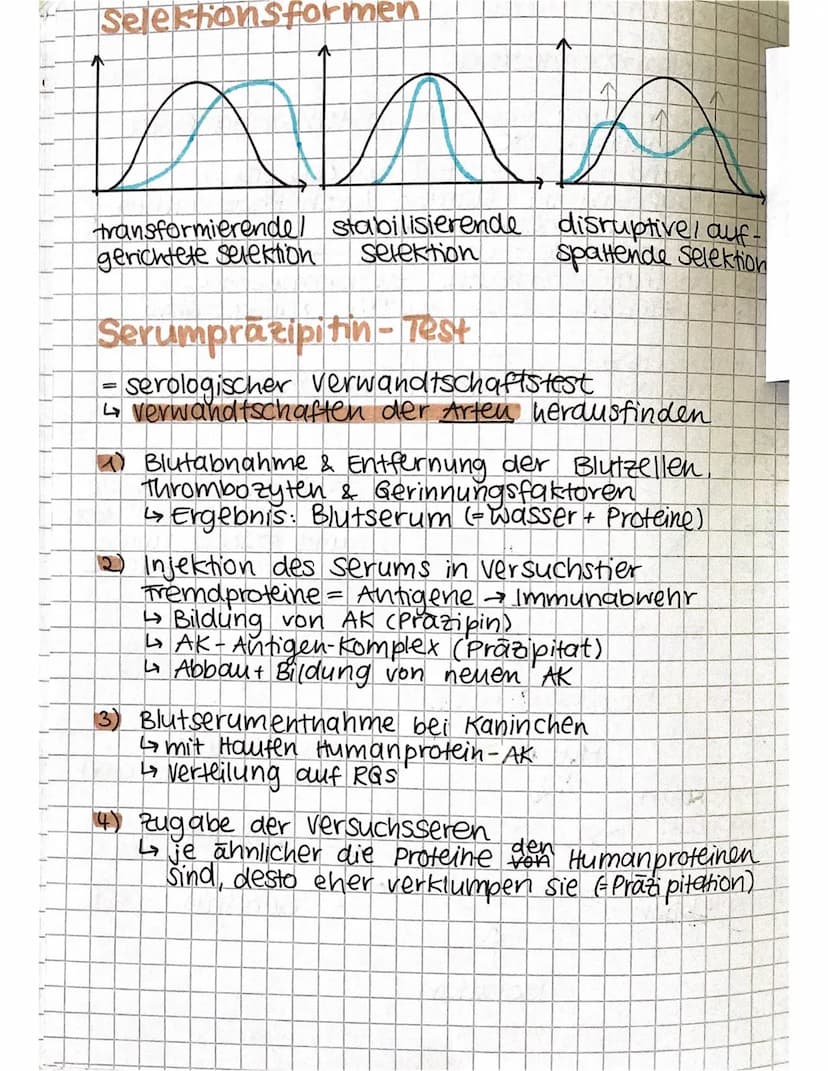 Selektionsformen
transformierende/ stabilisierende disruptive/ auf-
gerichtete Selektion Selektion spaltende Selektion
Serumpräzipitin-Test
= serologischer Verwandtschaftstest
↳ Verwandtschaften der Arten herausfinden
1) Blutabnahme & Entfernung der Blutzellen,
Thrombozyten & Gerinnungsfaktoren
↳ Ergebnis: Blutserum (= Wasser + Proteine)
2) Injektion des Serums in Versuchstier
Fremdproteine = Antigene → Immunabwehr
↳ Bildung von AK (Präzipin)
↳ AK-Antigen-Komplex (Präzipitat)
↳ Abbau + Bildung von neuen AK
3) Blutserumentnahme bei Kaninchen
↳ mit Haufen Humanprotein-AK
↳ Verteilung auf RGS
4) Zugabe der Versuchsseren
↳ je ähnlicher die Proteine den Humanproteinen
sind, desto eher verklumpen sie (=Präzipitation)